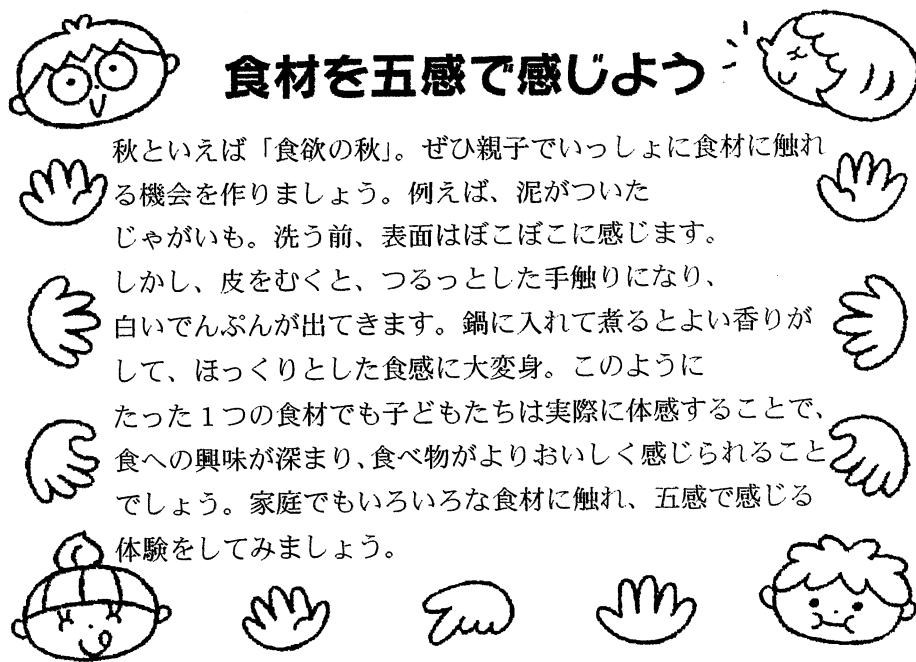 食材を五感で感じよう
秋といえば「食欲の秋」。ぜひ親子でいっしょに食材に触れ
る機会を作りましょう。例えば、泥がついた
じゃがいも。洗う前、表面はぼこぼこに感じます。
しかし、皮をむくと、つるっとした手触りになり、
白いでんぷんが出てきます。鍋に入れて煮るとよい香りが
して、ほっくりとした食感に大変身。このように
たった1つの食材でも子どもたちは実際に体感することで、
食への興味が深まり、食べ物がよりおいしく感じられること
でしょう。家庭でもいろいろな食材に触れ、五感で感じる
体験をしてみましょう。